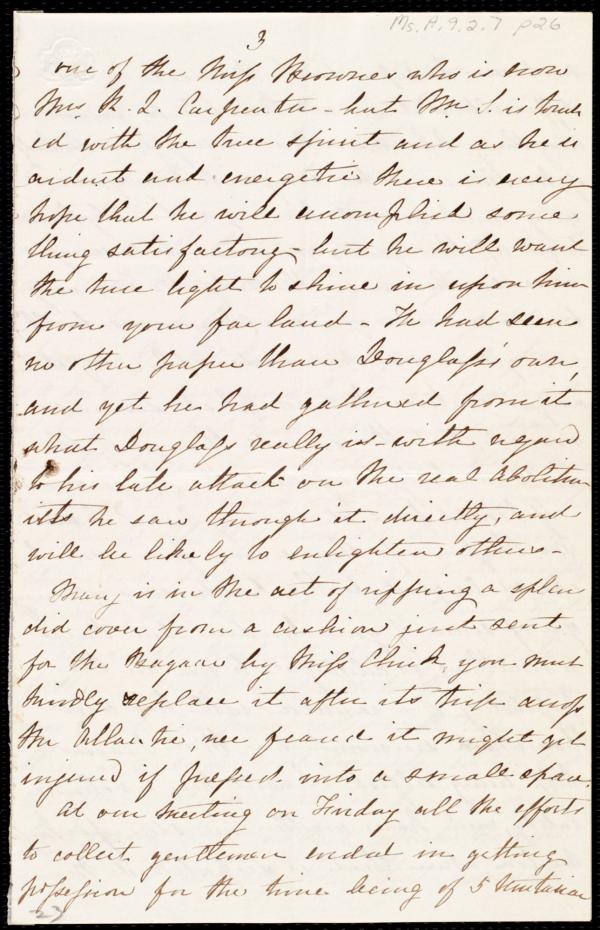 Ms. A. 9. 2. 7 p26
3
one of the Miss Brownes who is now
Mrs. R. L. Carpenter - but Mr. S. is touch
ed with the true spirit and as he is
ardent and energetic there is every
hope that he will accomplish some
thing satisfactory - but he will want
the true light to shine in upon him
from your far land - He had seen
no other paper than Douglass' own,
and yet he had gathered from it
what Douglass really is - with regard
to his late attack on the real Abolition
ists he saw through it directly, and
will be likely to enlighten others -
Mary is in the act of ripping a splen
did cover from a cushion just sent
for the Bazaar by Miss Chick, you must
kindly replace it after its trip across
the Atlantic, we feared it might get
injured if pressed into a small space.
At our meeting on Friday all the efforts
to collect gentlemen ended in getting
possession for the time being of 5 Unitarian
23